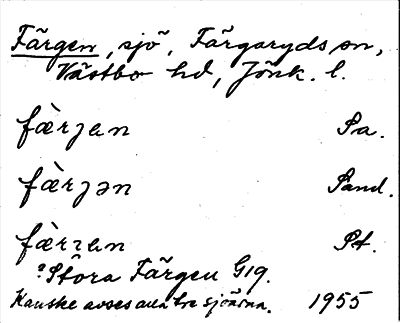 Färgen, sjö, Färgaryds sn,
Västbo hd, Jönk. l.
fæ̀rjan Sa.
fæ̀rjən Sand.
fæ̀rjan St.
? Stora Färgen G19.
Kanske avses alla tre sjöarna. 1955